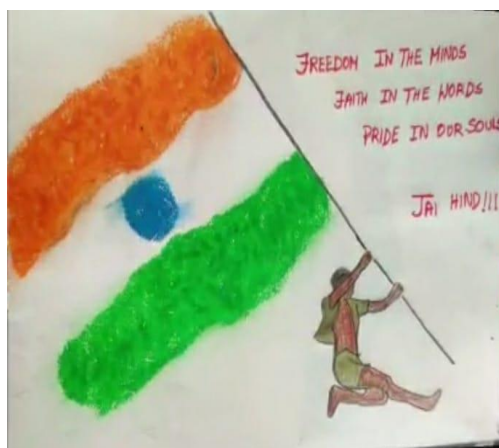 FREEDOM IN THE MINDS
FAITH IN THE WORDS
PRIDE IN OUR SOULS
JAI HIND!!!